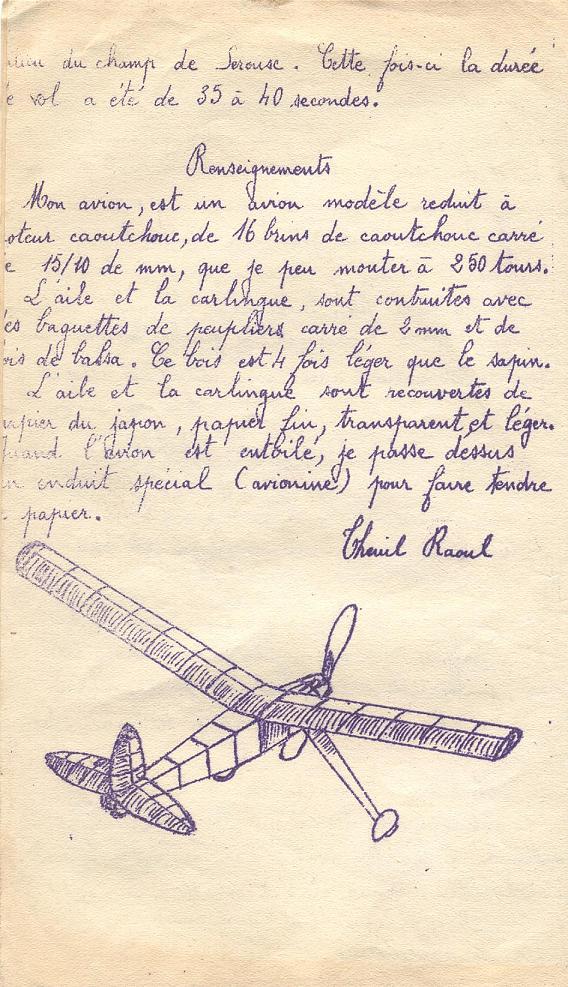 du champ de Serouse. Cette fois-ci la durée
e vol a été de 35 à 40 secondes.
Renseignements
Mon avion, est un avion modèle reduit à
oteur caoutchouc, de 16 brins de caoutchouc carré
e 15/10 de mm, que je peu monter à 250 tours.
L'aile et la carlingue, sont contruites avec
es baguettes de peupliers carré de 2 mm et de
ois de balsa. Ce bois est 4 fois léger que le sapin.
L'aile et la carlingue sont recouvertes de
apier du japon, papier fin, transparent et léger.
uand l'avion est entoilé, je passe dessus
n enduit spécial (avionine) pour faire tendre
papier.
Raoul